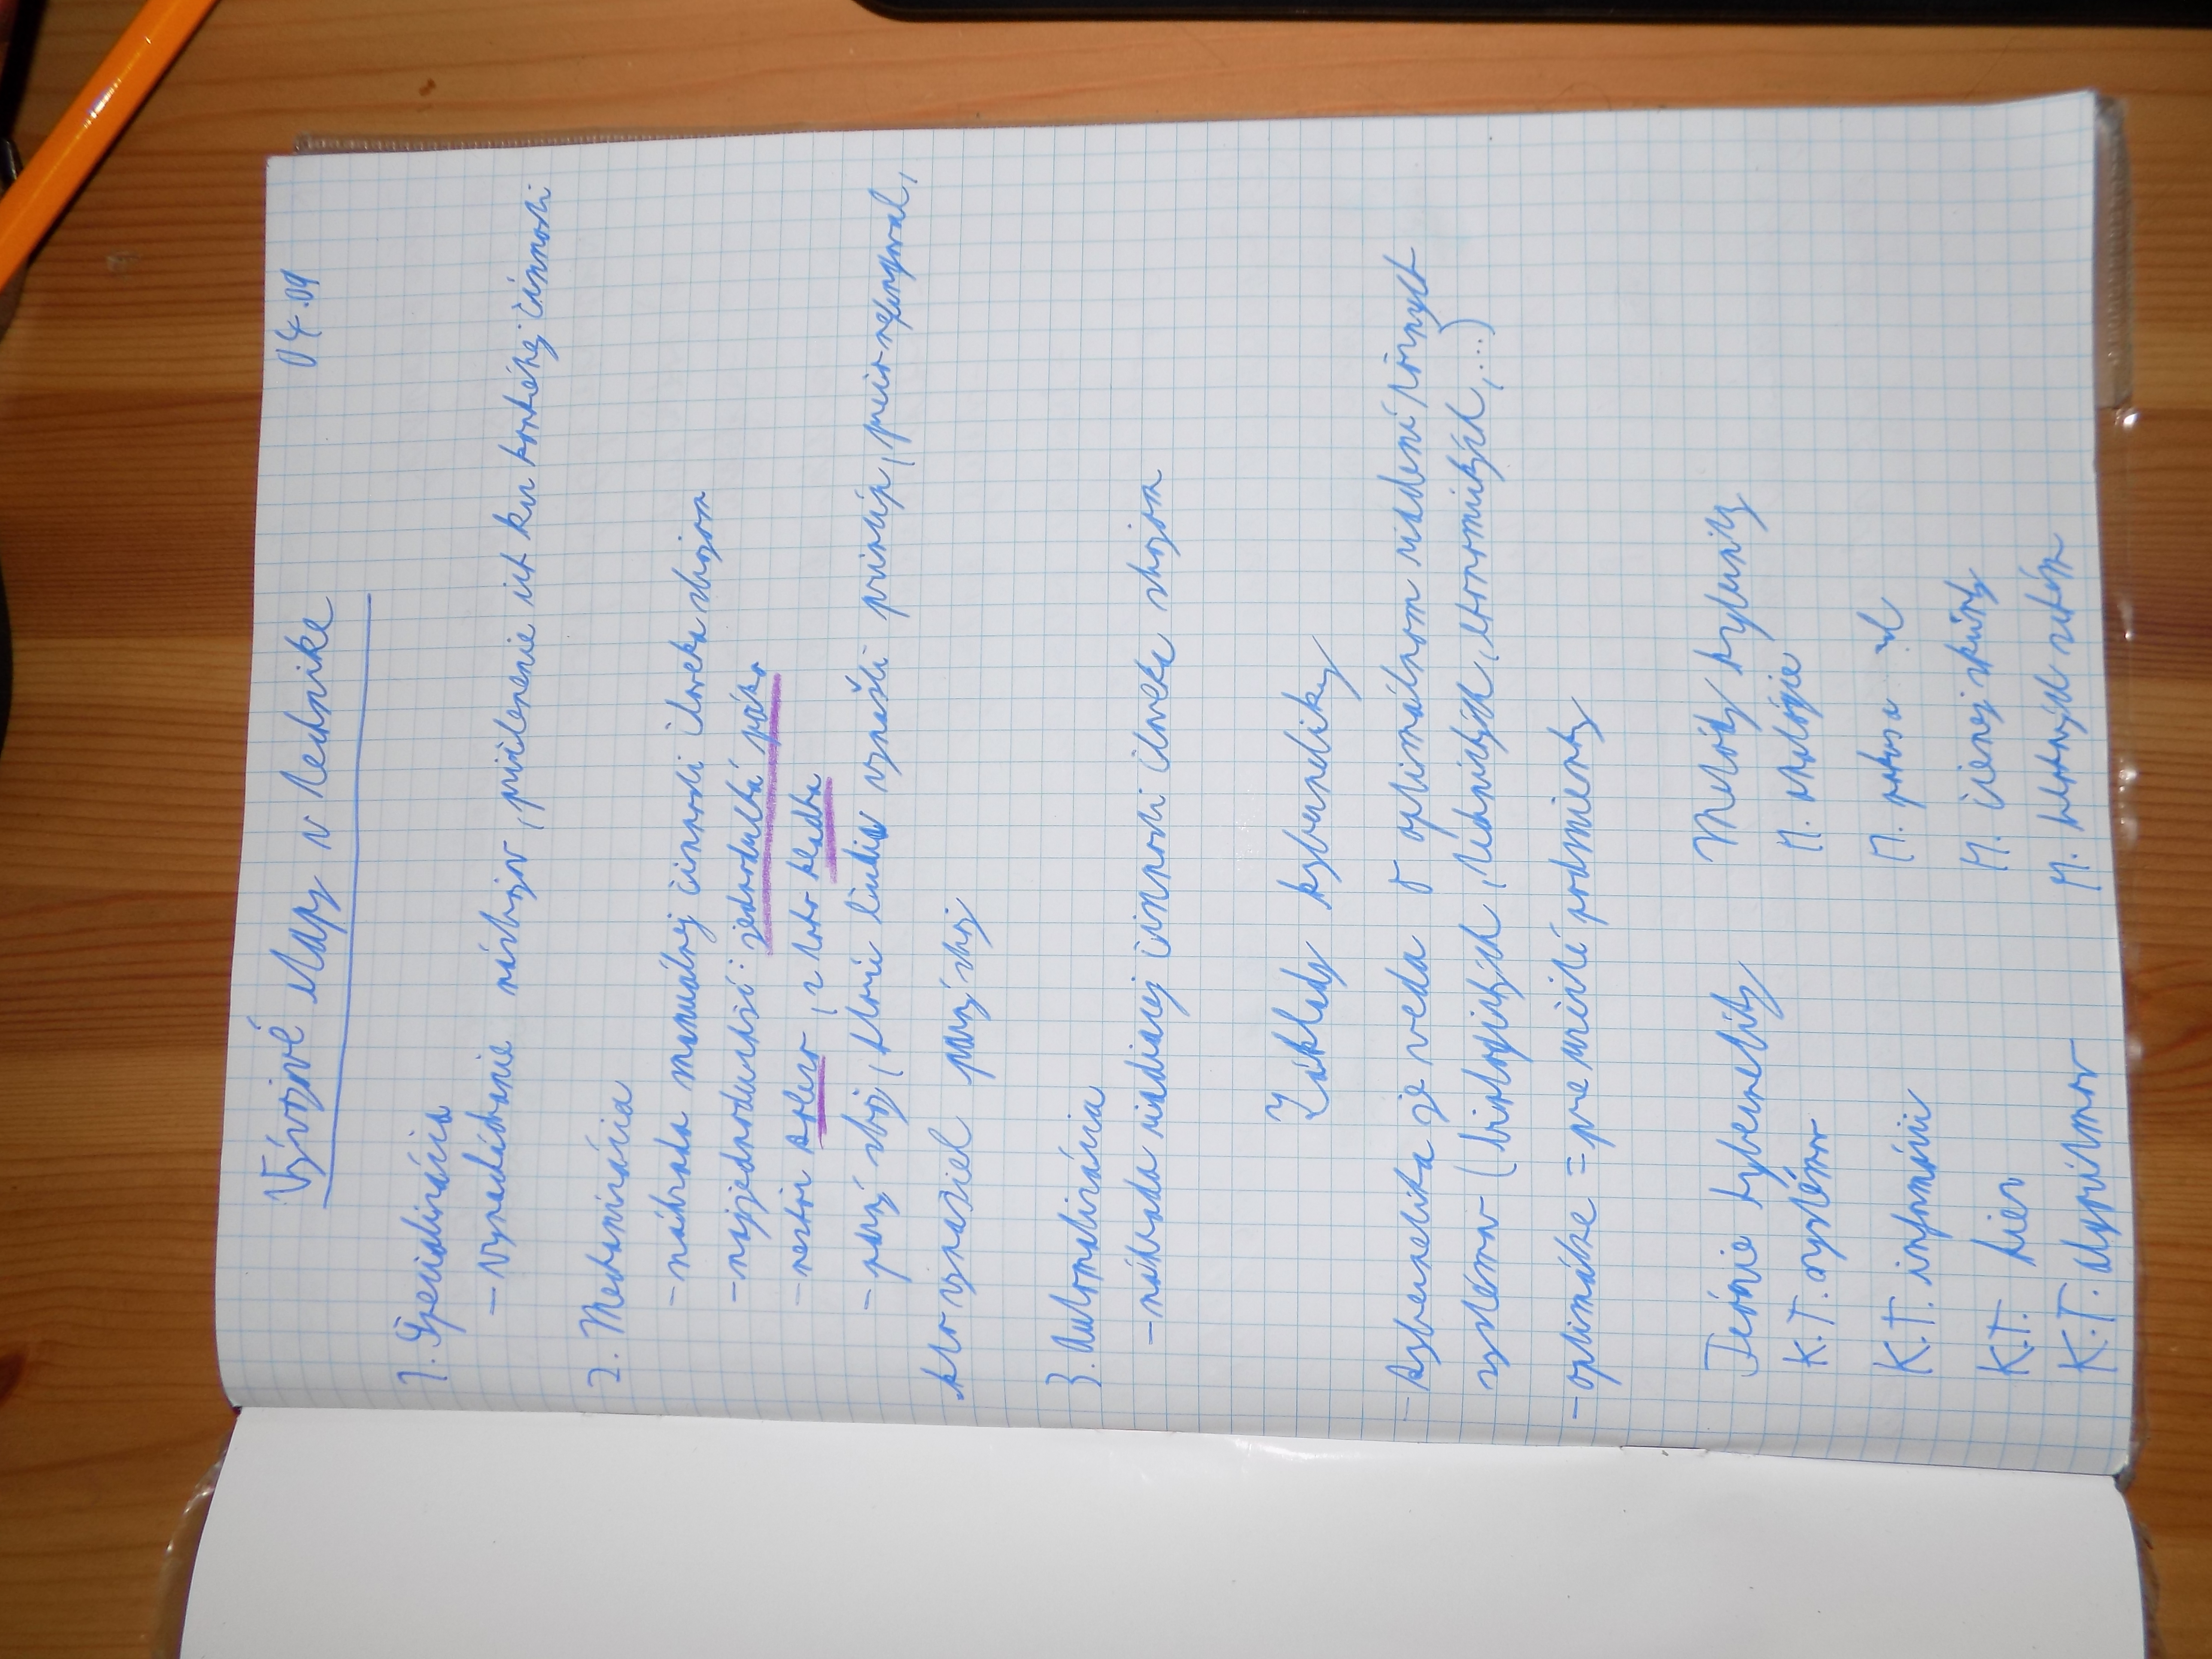 Vývojové etapy v technike 04.09
1. Špecializácia
- vynachádzanie nástrojov, pridelenie ich ku konkrétnej činnosti
2. Mechanizácia
- náhrada manuálnej činnosti človeka strojom
- najjednoduchší: jednoduchá páka
- neskôr koleso, z toho kladka
- parný stroj, ktorí ľudia vynašli princíp,
kto vynašiel parný stroj
3. Automatizácia
- náhrada riadiacej činnosti človeka strojom
Základy kybernetiky
- kybernetika je veda o optimálnom riadení rôznych
systémov (biologických, technických, ekonomických, ...)
- optimálne = pre určité podmienky
Teórie kybernetiky Metódy kybernetiky
K.T. systémov M. analógie
K.T. informácií M. pokusa
K.T. hier M. čiernej skrinky
K.T. algoritmov M.